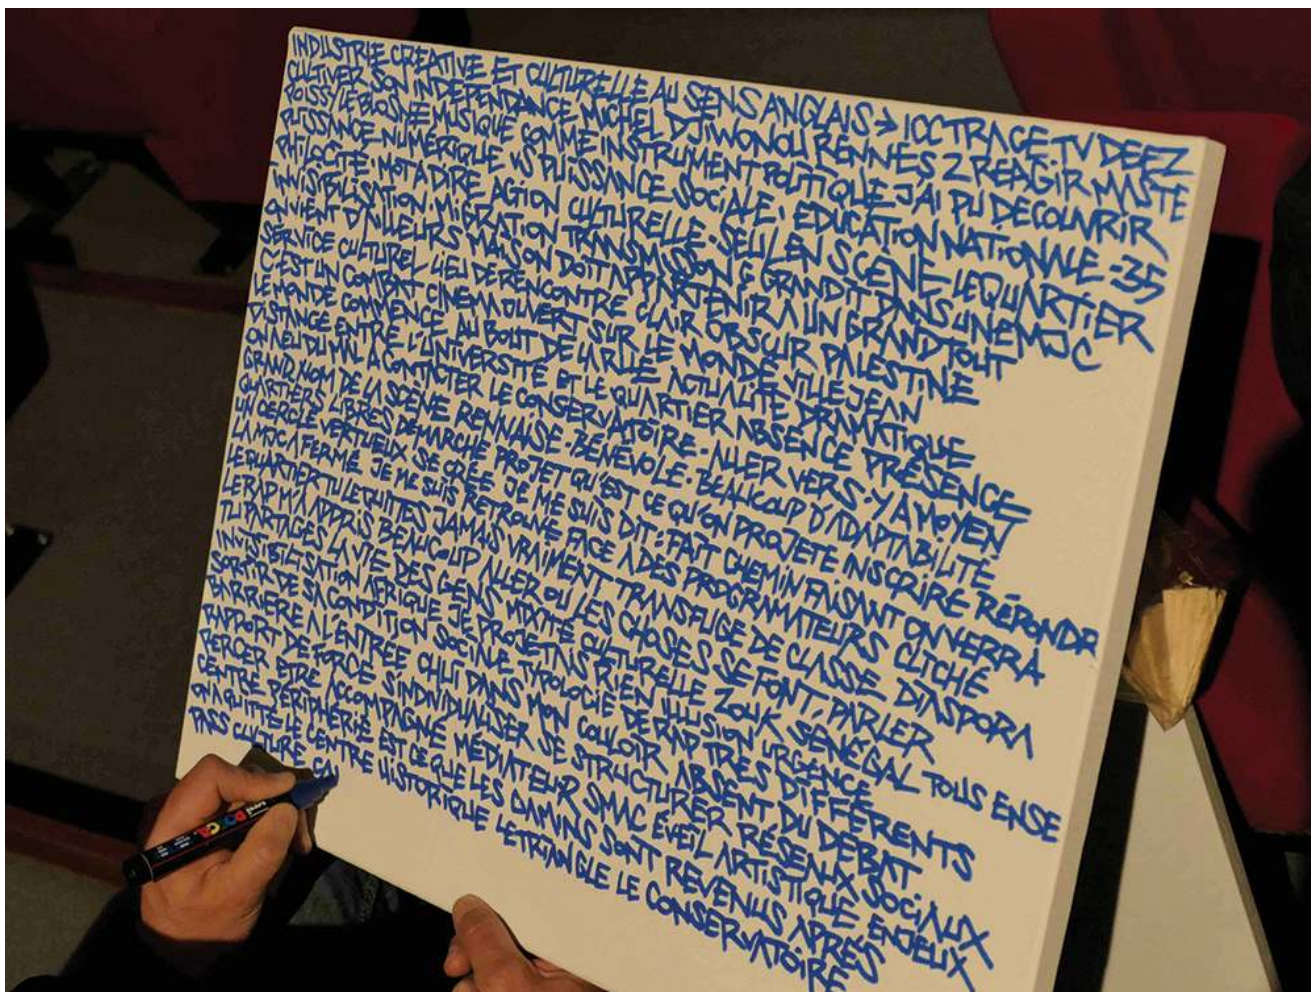 INDUSTRIE CRÉATIVE ET CULTURELLE AU SENS ANGLAIS → ICC TRACE TV DEEZ
CULTIVER SON INDEPENDANCE MICHEL DJIWONOU RENNES 2 REAGIR MASTE
POISSY LE BLOSNE MUSIQUE COMME INSTRUMENT POLITIQUE J'AI PU DECOUVRIR
PUISSANCE NUMÉRIQUE VS PUISSANCE SOCIALE. EDUCATION NATIONALE -35
PHILOCITÉ. MOT A DIRE ACTION CULTURELLE - SEUL EN SCÈNE LE QUARTIER
INVISIBILISATION MIGRATION TRANSMISSION & GRANDIT DANS UNE MJC
ON VIENT D'AILLEURS MAIS ON DOIT APPARTENIR A UN GRAND TOUT
SERVICE CULTUREL LIEU DE RENCONTRE CLAIR OBSCUR PALESTINE
C'EST UN COMBAT CINEMA OUVERT SUR LE MONDE VILLE JEAN
LE MONDE COMMENCE AU BOUT DE LA RUE ACTUALITÉ DRAMATIQUE
DISTANCE ENTRE L'UNIVERSITÉ ET LE QUARTIER ABSENCE PRÉSENCE
ON A EU DU MAL A CONTACTER LE CONSERVATOIRE - ALLER VERS. Y A MOYEN
GRAND NOM DE LA SCÈNE RENNAISE. BÉNÉVOLE. BEAUCOUP D'ADAPTABILITÉ
QUARTIERS LIBRES DÉMARCHE PROJET QU'EST CE QU'ON PROJETE INSCRIRE RÉPONDR
UN CERCLE VERTUEUX SE CRÉE JE ME SUIS DIT : FAIT CHEMIN FAISANT ON VERRA
LA FERMÉ JE ME SUIS RETROUVÉ FACE A DES PROGRAMATEURS CLICHÉ
LE QUARTIER TU LE QUITTES JAMAIS VRAIMENT TRANSFUGE DE CLASSE DIASPORA
LE RAP M'A APPRIS BEAUCOUP ALLER OU LES CHOSES SE FONT, PARLER
TU PARTAGES LA VIE DES GENS MIXITÉ CULTURELLE ZOUK SÉNÉGAL TOUS ENSE
INVISIBILISATION AFRIQUE JE PROJETAIS RIEN ILLUSION URGENCE
SORTIR DE SA CONDITION SOCIALE TYPOLOGIE DE RAP TRÈS DIFFÉRENTS
BARRIÈRE A L'ENTRÉE CHUI DANS MON COULOIR ABSENT DU DÉBAT
RAPPORT DE FORCE S'INDIVIDUALISER SE STRUCTURER RÉSEAUX SOCIAUX
PERCER ETRE ACCOMPAGNÉ MÉDIATEUR SMAC ÉVEIL ARTISTIQUE ENJEUX
CENTRE PÉRIPHÉRIE EST CE QUE LES GAMINS SONT REVENUS APRÈS
ON A QUITTÉ LE CENTRE HISTORIQUE LE TRIANGLE LE CONSERVATOIRE
PASS CULTURE CA
POSCA